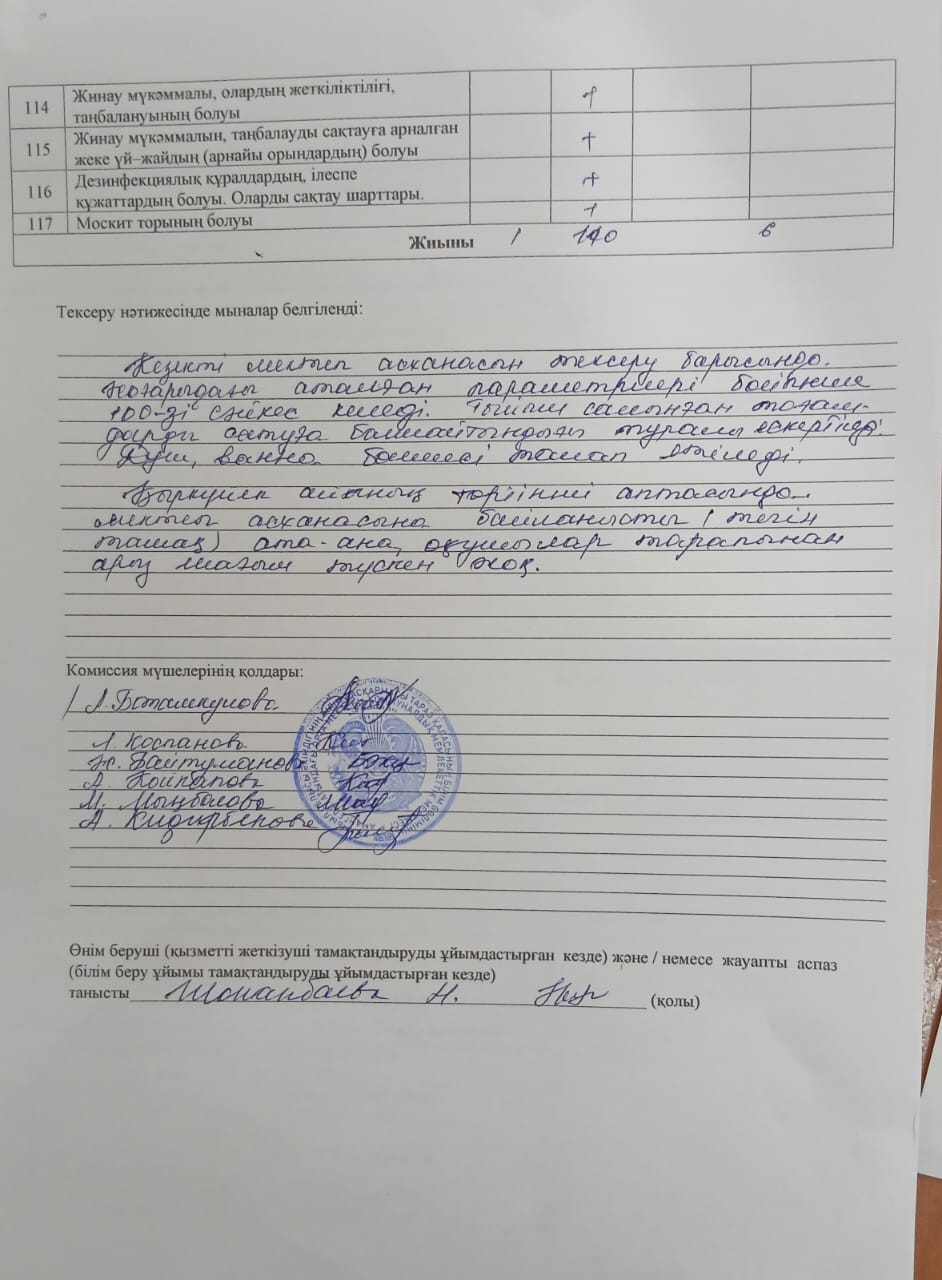 114 Жинау мүкәммалы, олардың жеткіліктілігі, +
таңбалануының болуы
115 Жинау мүкәммалын, таңбалауды сақтауға арналған +
жеке үй–жайдың (арнайы орындардың) болуы
116 Дезинфекциялық құралдардың, ілеспе +
құжаттардың болуы. Оларды сақтау шарттары.
117 Москит торының болуы +
Жиыны 1 110 6
Тексеру нәтижесінде мыналар белгіленді:
Кезекті мектеп асханасын тексеру барысында
жоғарыдағы аталған параметрлері бойынша
сәйкес келеді. Тыйым салынған тағам-
дарды сатуға болмайтындығы туралы ескерілді.
Душ, ванна бөлмесі талап етіледі.
Қыркүйек айының төртінші аптасында
мектеп асханасына байланысты (тегін
тамақ) ата-ана, оқушылар тарапынан
арыз шағым түспен жоқ.
Комиссия мүшелерінің қолдары:
Л. Коспанова
Ж. Байтуманова
М. Мыңбаева
Өнім беруші (қызметті жеткізуші тамақтандыруды ұйымдастырған кезде) және / немесе жауапты аспаз
(білім беру ұйымы тамақтандыруды ұйымдастырған кезде)
танысты Шонанбаева Н. (қолы)